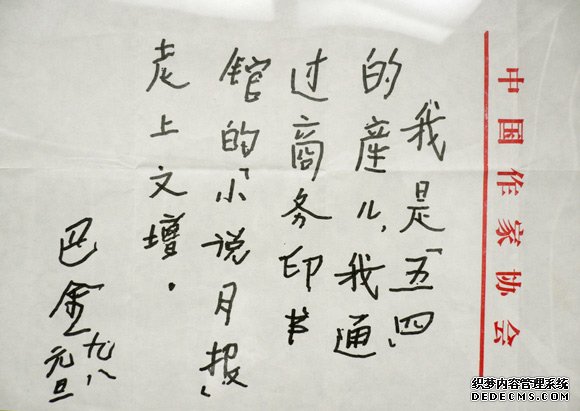 中国作家协会
我是「五四」
的産儿，我通
过商务印书
馆的「小说月报」
走上文壇．
巴金
九八
元旦
织梦内容管理系统
DEDECMS.COM